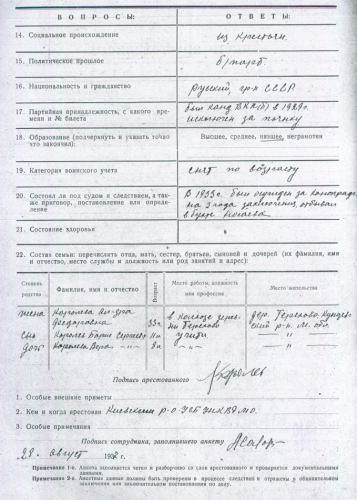 ВОПРОСЫ: ОТВЕТЫ:
14. Социальное происхождение из крестьян.
15. Политическое прошлое б/парт
16. Национальность и гражданство русский, гр-н СССР
17. Партийная принадлежность, с какого времени и № билета был канд ВКП(б) в 1929 г. исключен за пьянку
18. Образование (подчеркнуть и указать точно что закончил): Высшее, среднее, низшее, неграмотен
19. Категория воинского учета снят по возрасту
20. Состоял ли под судом и следствием, а также приговор, постановление или определение В 1933 г. был осужден за на 3 года заключения, отбывал в бухте Ногаева
21. Состояние здоровья
22. Состав семьи: перечислить отца, мать, сестер, братьев, сыновей и дочерей (их фамилия, имя и отчество, место службы и должность или род занятий и адрес):
Степень родства Фамилия, имя и отчество Возраст Место работы, должность или профессия Место жительства
жена Королева 33 г. в колхозе дер.
Федоровна р-н, М. обл.
сын Королев Борис Сергеевич 11 л учится — " —
дочь Королева Вера — " — 8 л — " — — " —
Подпись арестованного Королев
1. Особые внешние приметы
2. Кем и когда арестован р-о УГБ УНКВД МО.
3. Особые примечания
Подпись сотрудника, заполнившего анкету
28 . август 193
Примечание 1-е. Анкета заполняется четко и разборчиво со слов арестованного и проверяется документальными данными.
Примечание 2-е. Анкетные данные должны быть проверены в процессе следствия и отражены в обвинительном заключении или заключительном постановлении по делу.